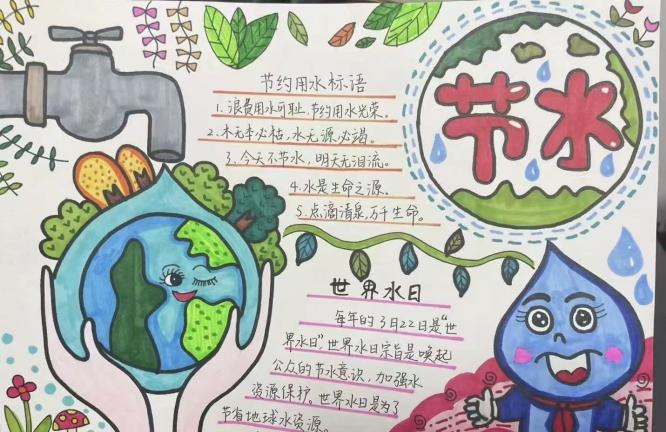 节约用水标语
1、浪费用水可耻、节约用水光荣。
2、木无本必枯，水无源必竭。
3、今天不节水，明天无泪流。
4、水是生命之源。
5、点滴清泉，万千生命。
节水
世界水日
每年的3月22日是“世
界水日”世界水日宗旨是唤起
公众的节水意识，加强水
资源保护。世界水日是为了
节省地球水资源。